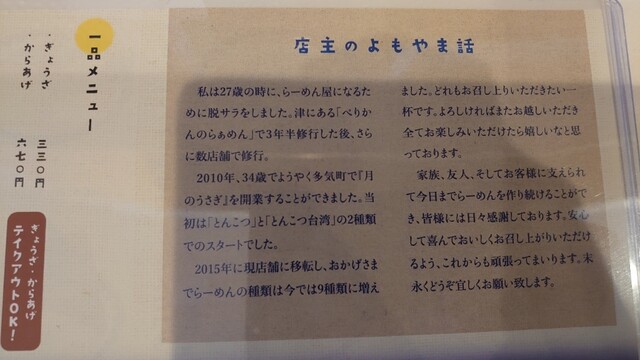 店主のよもやま話
私は27歳の時に、らーめん屋になるた
めに脱サラをしました。津にある「べりか
んのらぁめん」で3年半修行した後、さら
に数店舗で修行。
2010年、34歳でようやく多気町で『月
のうさぎ』を開業することができました。当
初は「とんこつ」と「とんこつ台湾」の2種類
でのスタートでした。
2015年に現店舗に移転し、おかげさま
でらーめんの種類は今では9種類に増え
ました。どれもお召し上りいただきたい一
杯です。よろしければまたお越しいただき
全てお楽しみいただけたら嬉しいなと思
っております。
家族、友人、そしてお客様に支えられ
て今日までらーめんを作り続けることがで
き、皆様には日々感謝しております。安心
して喜んでおいしくお召し上がりいただけ
るよう、これからも頑張ってまいります。末
永くどうぞ宜しくお願い致します。
一品メニュー
・ぎょうざ 三三〇円
・からあげ 六七〇円
ぎょうざ・からあげ
テイクアウトOK!